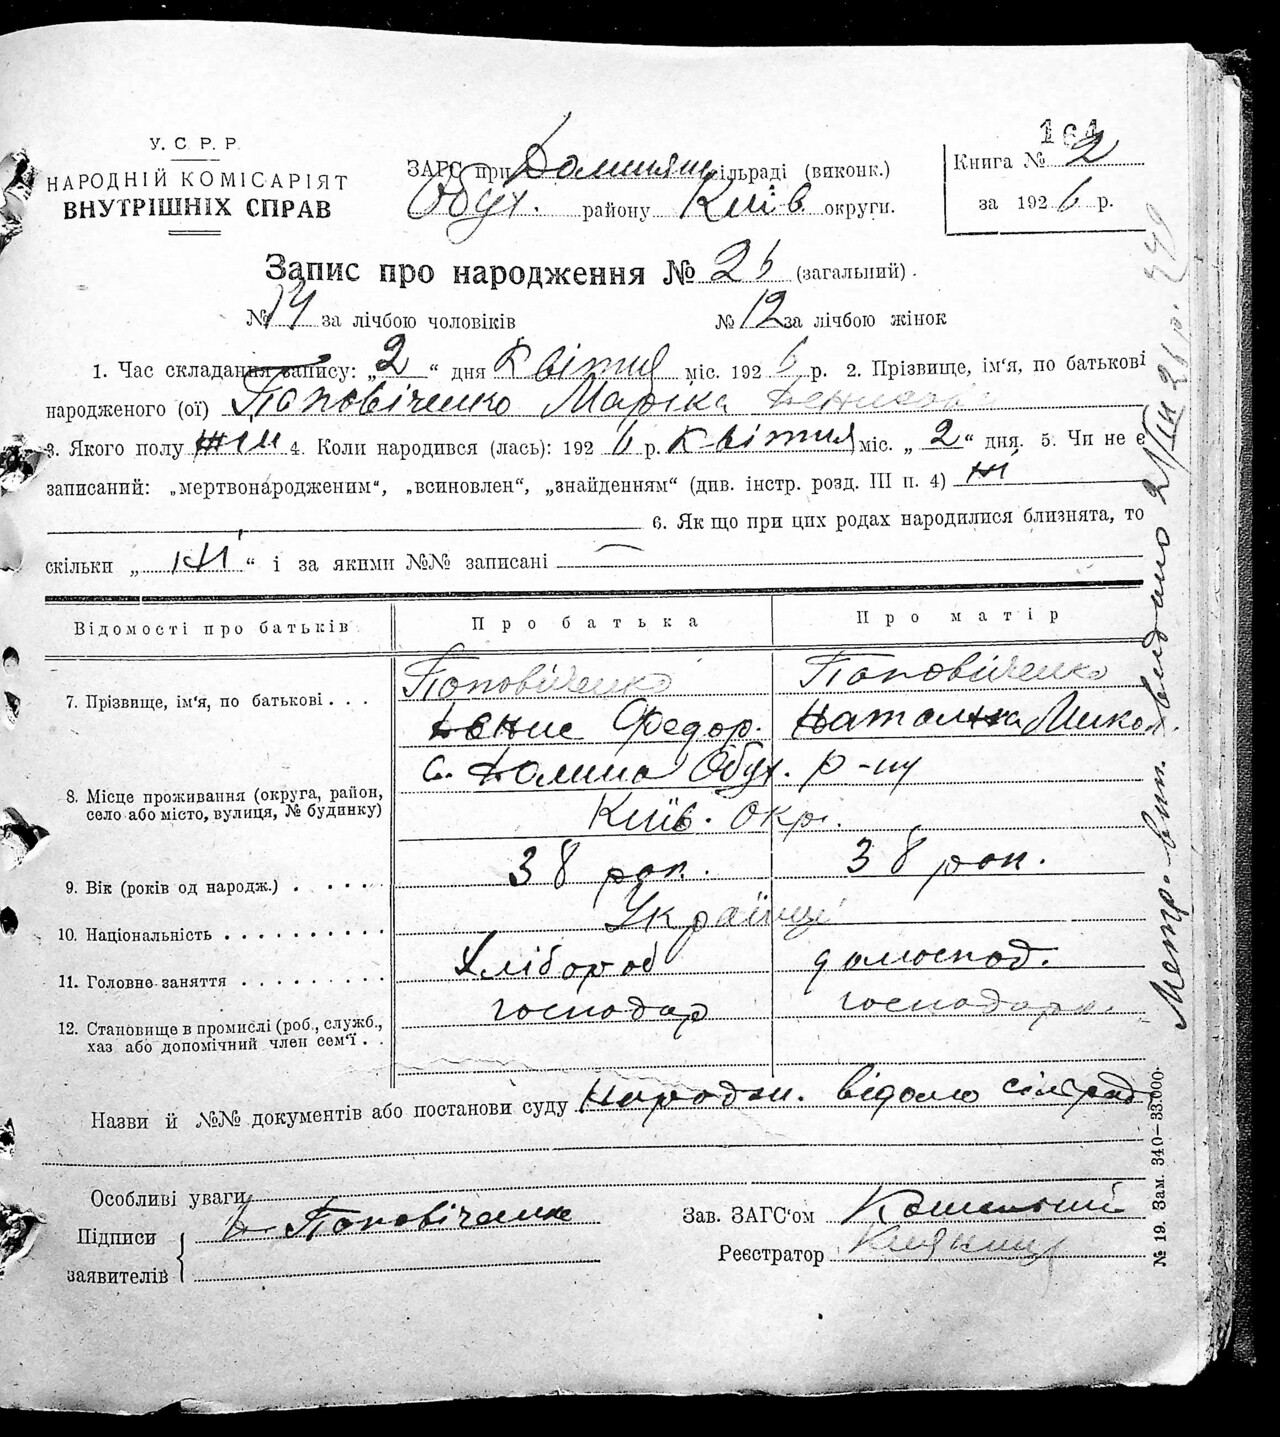 164
У. С. Р. Р.
НАРОДНІЙ КОМІСАРІЯТ
ВНУТРІШНІХ СПРАВ
ЗАГС при Долинян сільраді (виконк.)
Обух. району Київ округи.
Книга № 2
за 1926 р.
Запис про народження № 26 (загальний).
№ 14 за лічбою чоловіків № 12 за лічбою жінок
1. Час складання запису: „2“ дня Квітня міс. 1926 р. 2. Прізвище, ім'я, по батькові
народженого (ої) Поповіченко Марійка Денисова
3. Якого полу жін 4. Коли народився (лась): 1926 р. Квітня міс. „2“ дня. 5. Чи не є
записаний: „мертвонародженим“, „всиновлен“, „знайденням“ (див. інстр. розд. III п. 4) ні
6. Як що при цих родах народилися близнята, то
скільки „ні“ і за якими №№ записані —
Відомості про батьків Про батька Про матір
7. Прізвище, ім'я, по батькові . . . Поповіченко Поповіченко
Денис Федор. Наталка Микол.
8. Місце проживання (округа, район, село або місто, вулиця, № будинку) с. Долина Обух. р-ну
Київ. окр.
9. Вік (років од народж.) . . . . . 38 рок. 38 рок.
10. Національність . . . . . . . . . . Українці
11. Головне заняття . . . . . . . . . Хлібороб домоспод.
12. Становище в промислі (роб., служб., хаз або допомічний член сем'ї . . господар господарк.
Назви й №№ документів або постанови суду Народж. відомо сільрад
Особливі уваги
Підписи заявителів Д Поповіченко
Зав. ЗАГС'ом
Реєстратор
Метр. вип. видано 21/III
№ 19. Зам. 340—33.000.